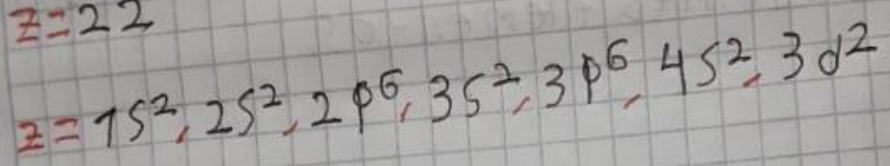 z=22
z=1s², 2s², 2p⁶, 3s², 3p⁶, 4s², 3d²